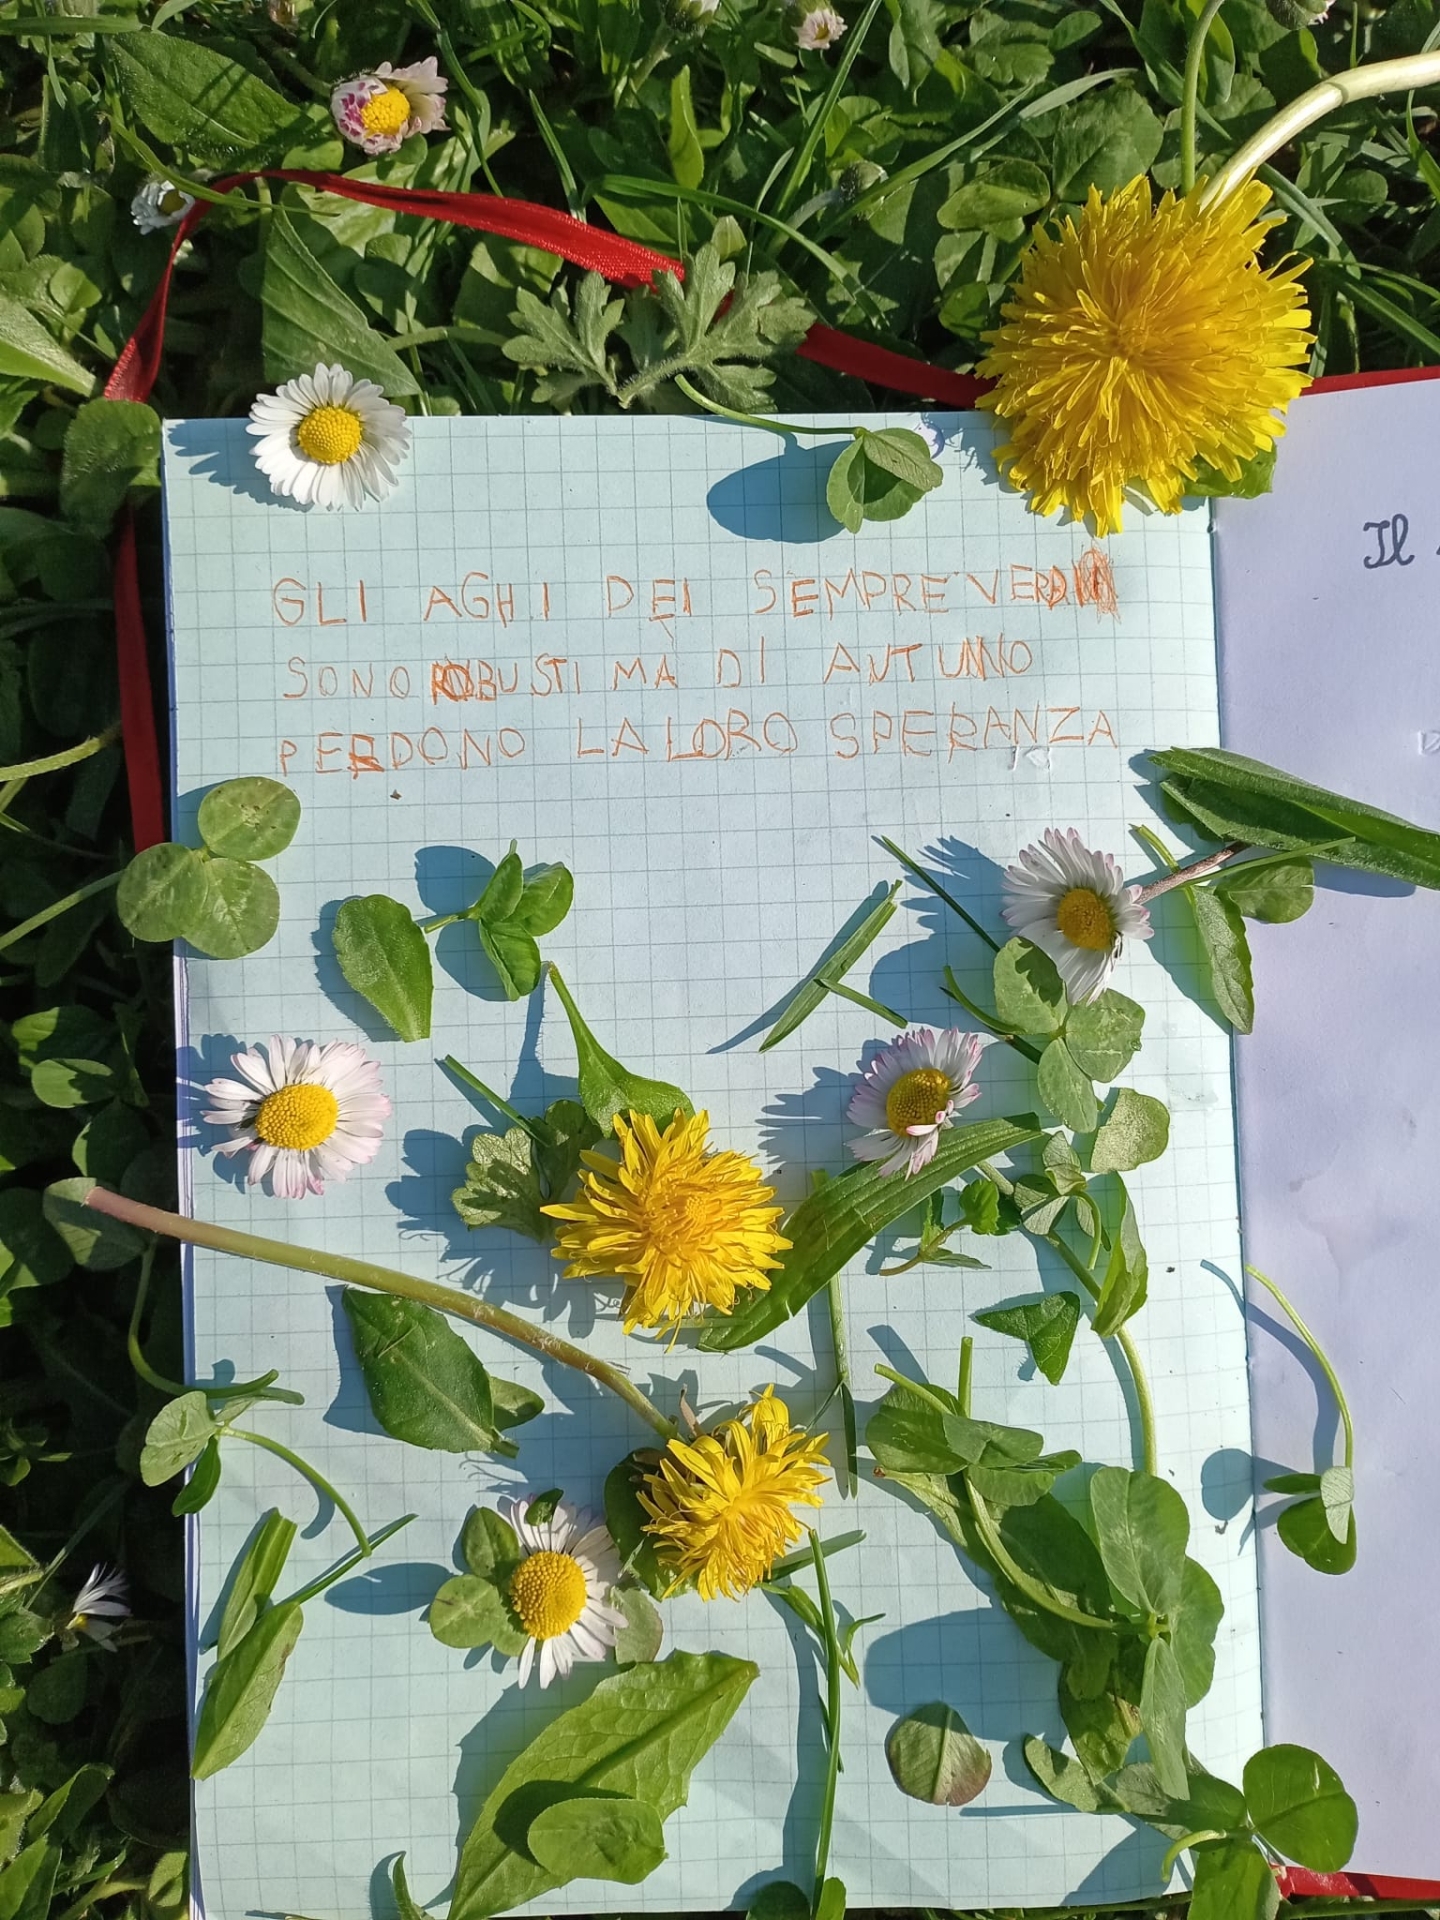 GLI AGHI DEI SEMPREVERDI
SONO ROBUSTI MA DI AUTUNNO
PERDONO LA LORO SPERANZA
Il